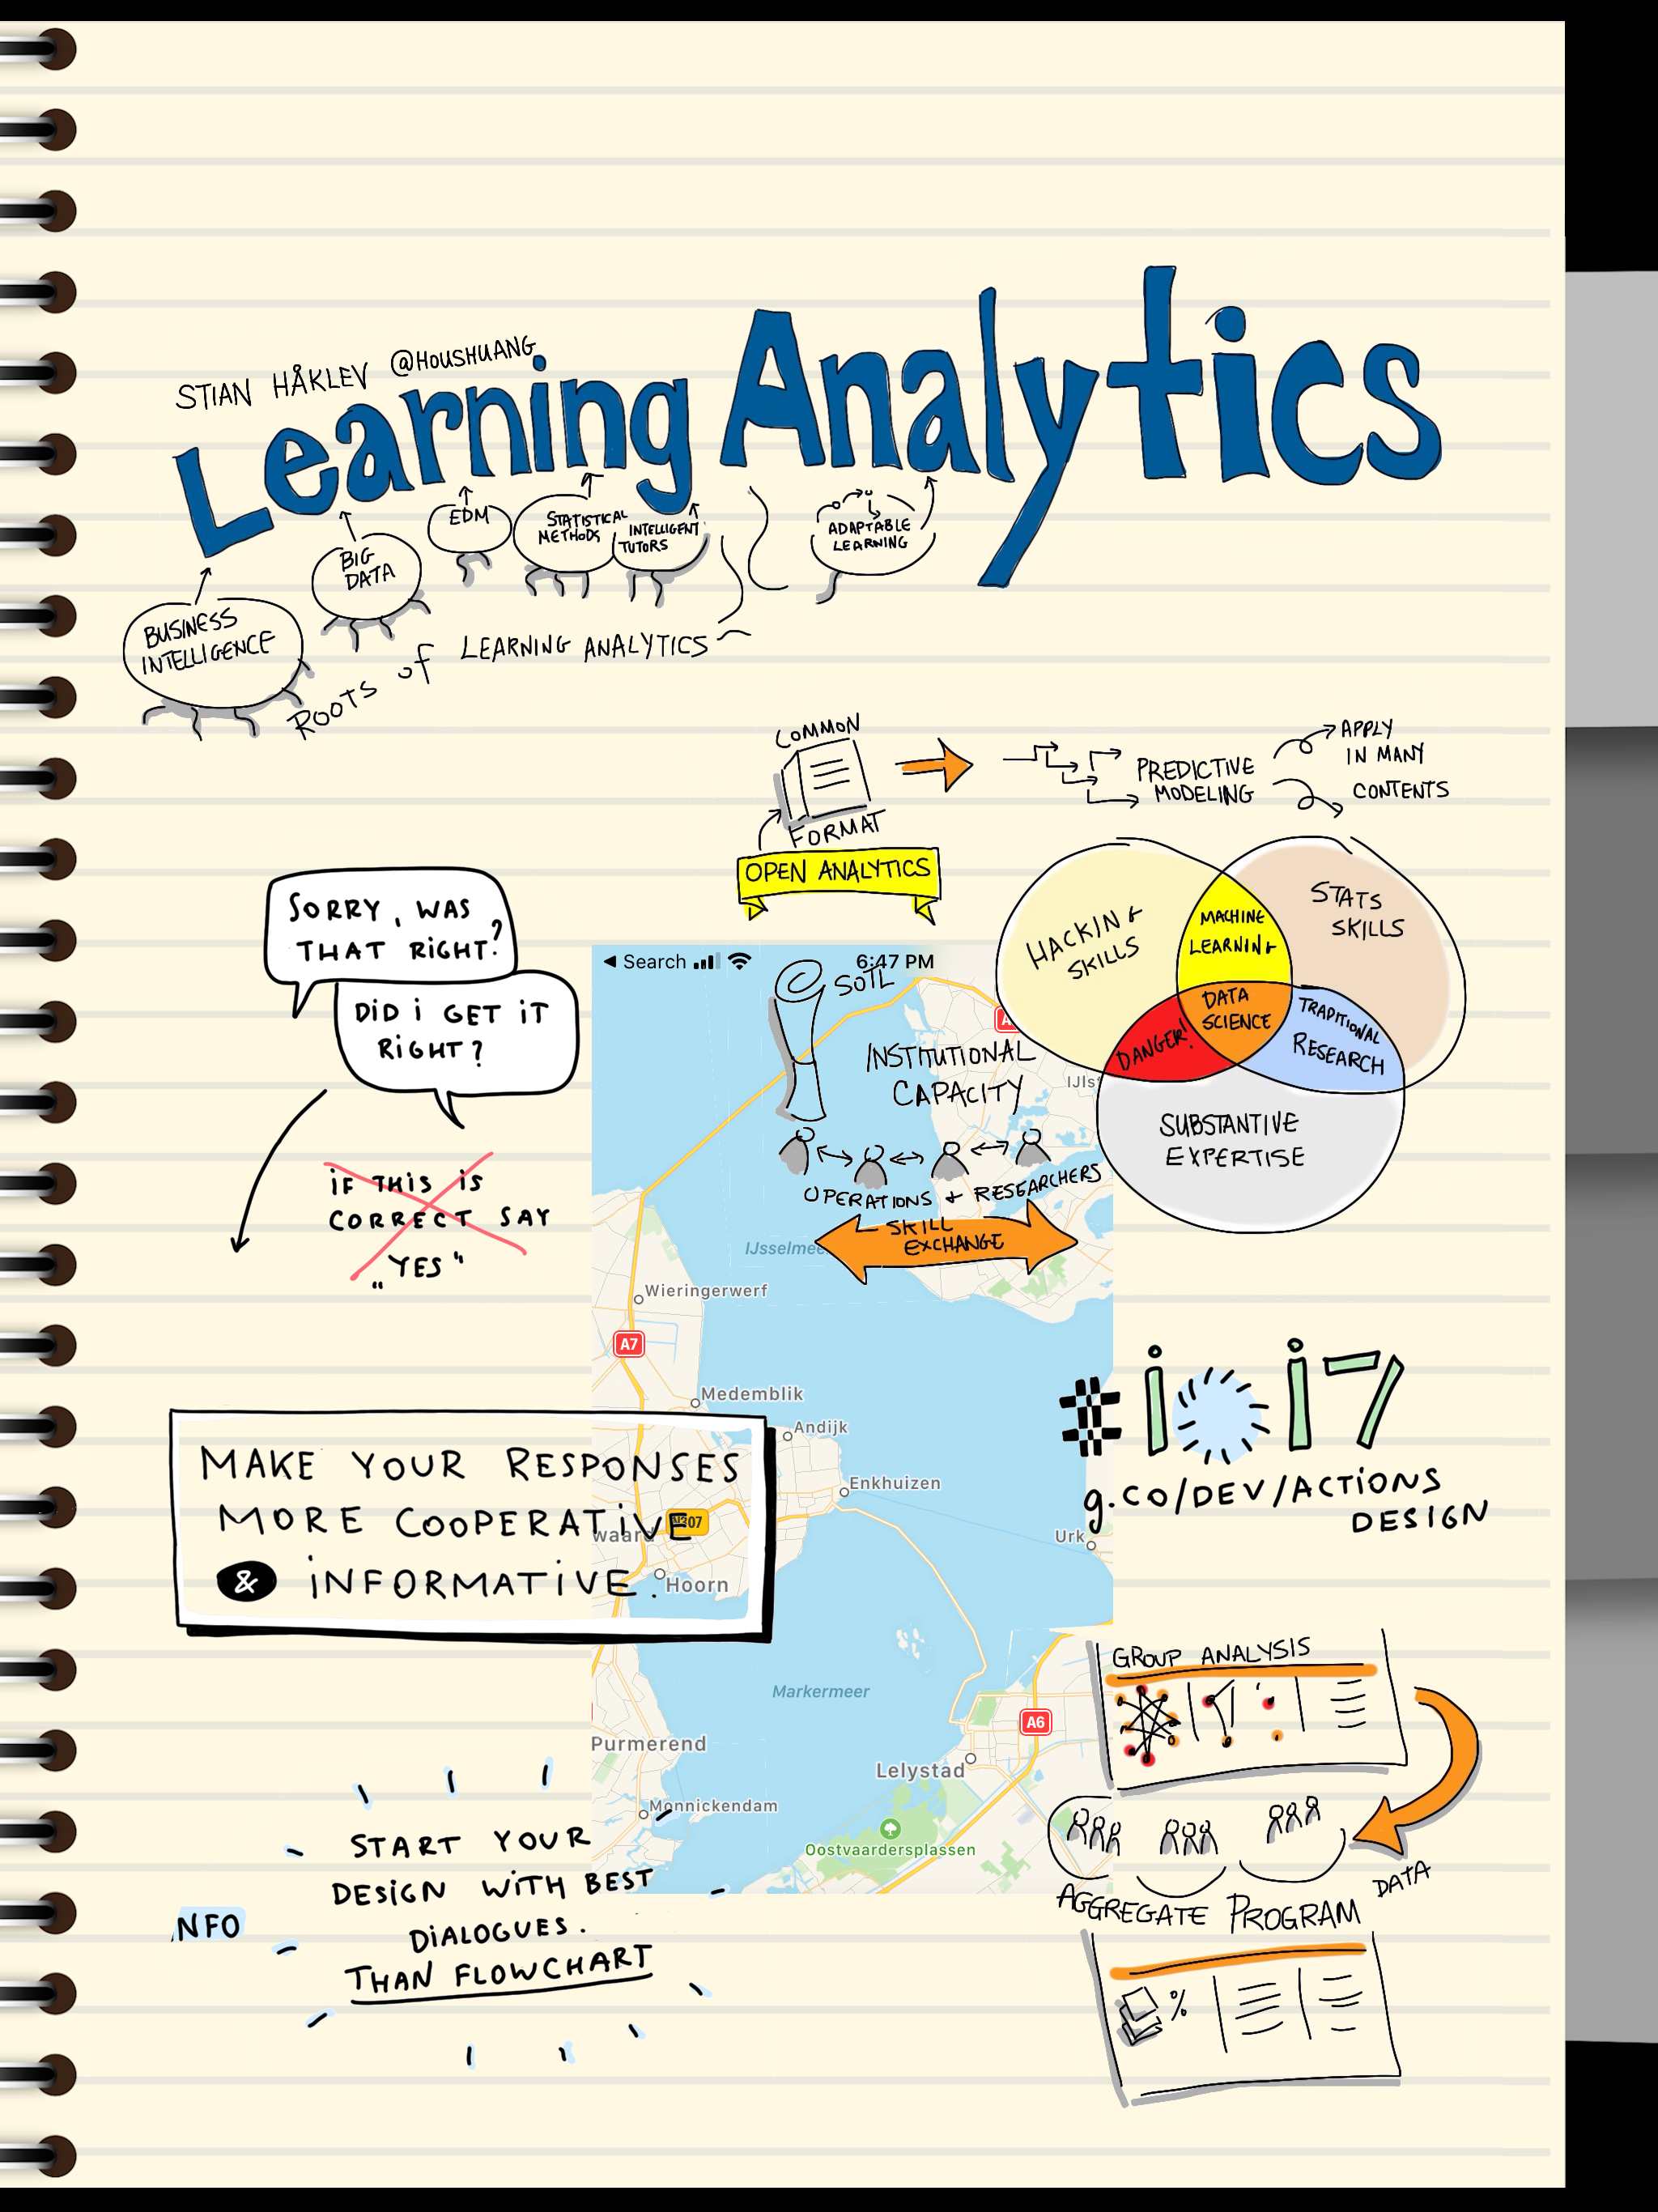 STIAN HÅKLEV @HOUSHUANG
Learning Analytics
EDM
STATISTICAL
METHODS
INTELLIGENT
TUTORS
ADAPTABLE
LEARNING
BIG
DATA
BUSINESS
INTELLIGENCE
ROOTS of LEARNING ANALYTICS
COMMON
FORMAT
OPEN ANALYTICS
PREDICTIVE
MODELING
APPLY
IN MANY
CONTENTS
SORRY, WAS
THAT RiGHT?
DiD i GET iT
RiGHT?
iF THiS iS
CORRECT SAY
„YES"
HACKING
SKILLS
MACHINE
LEARNING
STATS
SKILLS
DATA
SCIENCE
DANGER!
TRADITIONAL
RESEARCH
SUBSTANTIVE
EXPERTISE
◀ Search
6:47 PM
SOTL
INSTITUTIONAL
CAPACITY
IJlst
OPERATIONS + RESEARCHERS
SKILL
EXCHANGE
IJsselmee
Wieringerwerf
A7
Medemblik
Andijk
Enkhuizen
Urk
waard
N307
Hoorn
MAKE YOUR RESPONSES
MORE COOPERATiVE
& iNFORMATiVE.
#io17
g.co/DEV/ACTiONS
DESIGN
Markermeer
A6
Purmerend
Lelystad
Monnickendam
Oostvaardersplassen
GROUP ANALYSIS
DATA
AGGREGATE PROGRAM
%
START YOUR
DESiGN WiTH BEST
DiALOGUES.
THAN FLOWCHART
NFO